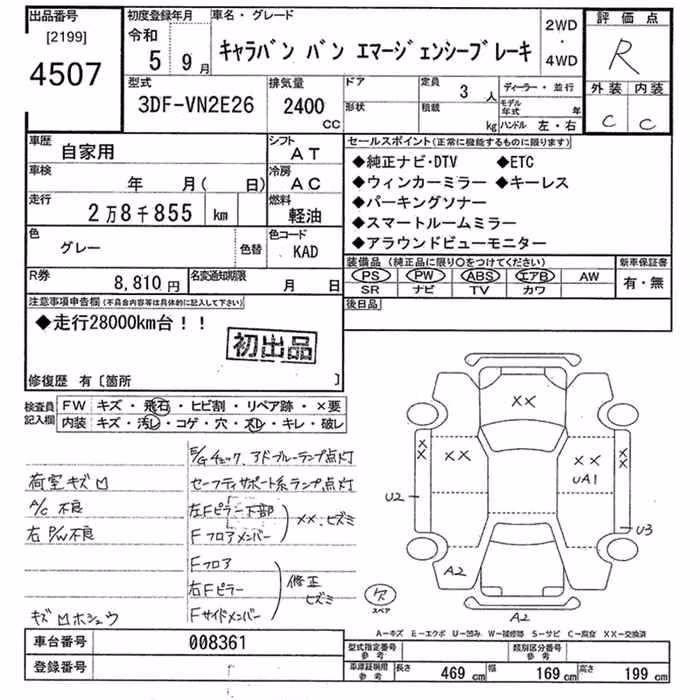 出品番号
[2199]
4507
初度登録年月
令和
5 9月
車名・グレード
キャラバン バン エマージェンシーブレーキ
2WD
・
4WD
評価点
R
外装 内装
C C
型式
3DF-VN2E26
排気量
2400
CC
ドア
形状
定員
3人
積載
kg
ディーラー・並行
モデル年式 年
ハンドル 左・右
車歴
自家用
シフト
AT
車検
年 月( 日)
冷房
AC
走行
2万8千855 km
燃料
軽油
色
グレー
色替
色コード
KAD
R券
8,810円
名変通知期限
月 日
セールスポイント(正常に機能するものに限ります)
◆純正ナビ・DTV ◆ETC
◆ウィンカーミラー ◆キーレス
◆パーキングソナー
◆スマートルームミラー
◆アラウンドビューモニター
装備品(純正品に限り〇をつけてください)
PS PW ABS エアB AW
SR ナビ TV カワ
新車保証書
有・無
後日品
注意事項申告欄(不具合内容等は具体的に記入して下さい)
◆走行28000km台!!
初出品
修復歴 有〔箇所 〕
検査員記入欄
FW キズ・飛石・ヒビ割・リペア跡・×要
内装 キズ・汚レ・コゲ・穴・スレ・キレ・破レ
E/Gチェック、アドブルーランプ点灯
荷室キズ凹 セーフティサポート系ランプ点灯
A/C不良 左Fピラー下部
××、ヒズミ
右P/W不良 Fフロアメンバー
Fフロア
右Fピラー
修正ヒズミ
キズ凹ホシュウ Fサイドメンバー
××
×× ×× ×× ××
UA1
U2
U3
A2
A2
欠
スペア
A-キズ E-エクボ U-凹み W-補修跡 S-サビ C-腐食 XX-交換済
車台番号 008361
登録番号
型式指定番号 参考
類別区分番号 参考
車庫証明用 参考
長さ 469cm 幅 169cm 高さ 199cm